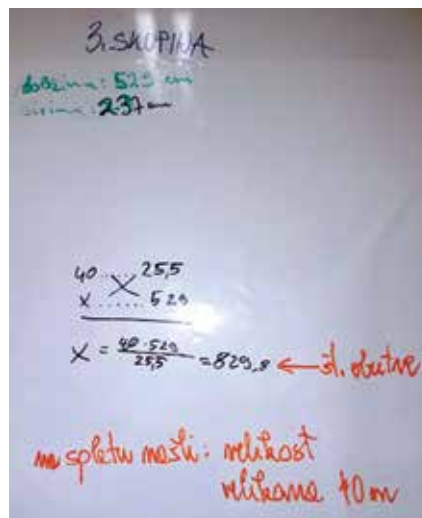 3. SKUPINA
dolžina: 529 cm
širina: 237 cm
40 ..... 25,5
x ...... 529
x = 40·529 / 25,5 = 829,8 ← št. obutve
na spletu našli: velikost
velikana 40 m